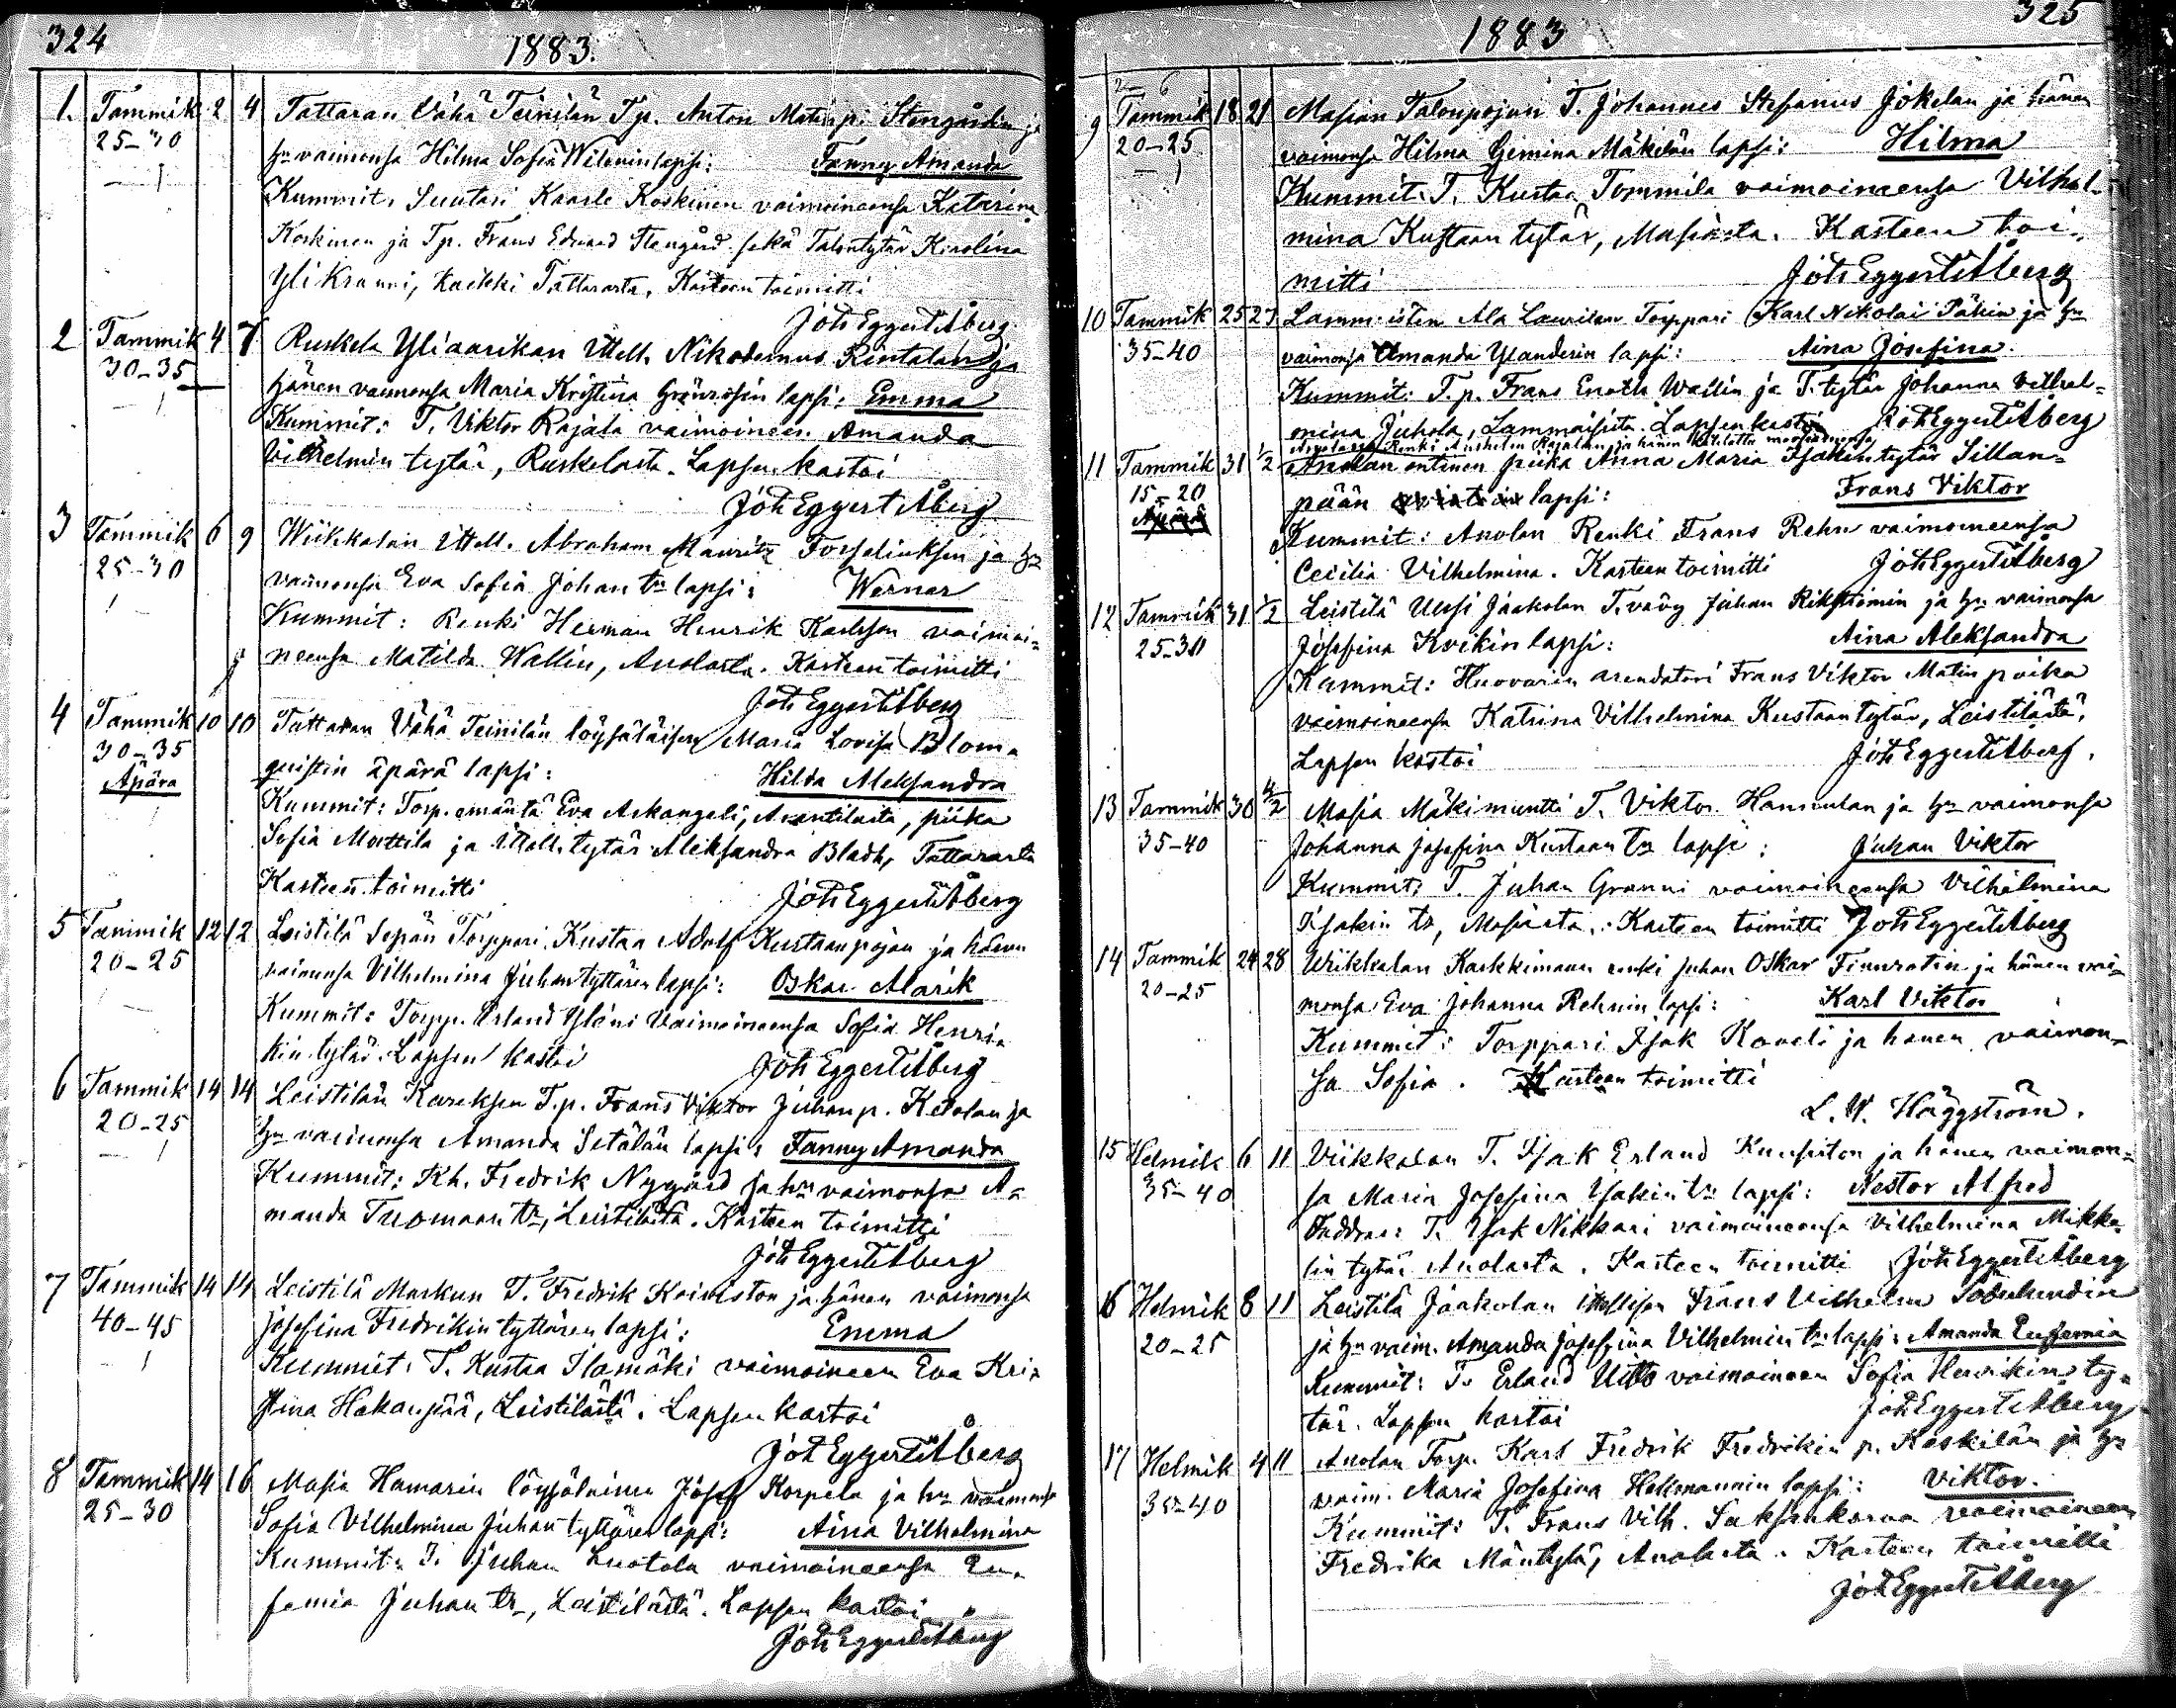 324
1883.
1. Tammik 2 4 Tattaran Vähä Teinilän Tp. Anton Matinp. Stengårdin ja
25-30 hn vaimonsa Hilma Sofia Wileninlapsi: Fanny Amanda
Kummit: Suutari Kaarle Koskinen vaimoineensa Katarina
Koskinen ja Tp. Frans Edvard Stengård sekä Talontytär Karolina
Yli Kranni, kaikki Tattarasta. Kasteen toimitti
Joh Eggert Åberg
2 Tammik 4 7 Ruskela Yliaarikan Ittell. Nikodemus Rintalan ja
30-35 hänen vaimonsa Maria Kristina Grönroosin lapsi: Emma
Kummit: T. Viktor Rajala vaimoineen Amanda
Vilhelmin tytär, Ruskelasta. Lapsen kastoi
Joh Eggert Åberg
3 Tammik 6 9 Wiikkalan Ittell. Abraham Mauritz Forseliuksen ja hn
25-30 vaimonsa Eva Sofia Johan tn lapsi: Werner
Kummit: Renki Herman Henrik Karlsson vaimoi-
neensa Matilda Wallin, Anolasta. Kasteen toimitti
Joh Eggert Åberg
4 Tammik 10 10 Tattaran Vähä Teinilän löysäläisen Maria Lovisa Blom-
30-35 quistin äpärä lapsi: Hilda Aleksandra
Äpära Kummit: Torp. emäntä Eva Arkangeli, Anantilasta, piika
Sofia Mattila ja Ittell. tytär Aleksandra Bladh, Tattarasta
Kasteen toimitti Joh Eggert Åberg
5 Tammik 12 12 Leistilä Sepän Torppari Kustaa Adolf Kustaanpojan ja hänen
20-25 vaimonsa Vilhelmina Juhantyttären lapsi: Oskar Alarik
Kummit: Torpp. Erland Yläni Vaimoineensa Sofia Henri-
kin tytär. Lapsen kastoi Joh Eggert Åberg
6 Tammik 14 14 Leistilän Kareksen T.p. Frans Viktor Juhan p. Ketolan ja
20-25 hn vaimonsa Amanda Setälän lapsi: Fanny Amanda
Kummit: Kh. Fredrik Nygård ja hn vaimonsa A-
manda Tuomaan tr, Leistilästä. Kasteen toimitti
Joh Eggert Åberg
7 Tammik 14 14 Leistilä Markun T. Fredrik Koiviston ja hänen vaimonsa
40-45 Josefina Fredrikin tyttären lapsi: Emma
Kummit: T. Kustaa Ilamäki vaimoineen Eva Kri-
stina Hakanpää, Leistilästä. Lapsen kastoi
Joh Eggert Åberg
8 Tammik 14 16 Masia Hamarin löysäläinen Josef Korpela ja hn vaimonsa
25-30 Sofia Vilhelmina Juhan tyttären lapsi: Aina Vilhelmina
Kummit: T. Juhan Luotola vaimoineensa Eu-
femia Juhan tr, Leistilästä. Lapsen kastoi
Joh Eggert Åberg
325
1883
9 Tammik 18 21 Masian Talonpojan T. Johannes Stefanus Jokelan ja hänen
20-25 vaimonsa Hilma Gemina Mäkilän lapsi: Hilma
Kummit: T. Kustaa Tommila vaimoineensa Vilhel-
mina Kustaan tytär, Masiasta. Kasteen toi-
mitti Joh Eggert Åberg
10 Tammik 25 27 Lammaisten Ala Laurilan Torppari Karl Nikolai Päkin ja hn
35-40 vaimonsa Amanda Ylanderin lapsi: Aina Josefina.
Kummit: T.p. Frans Enokh Wallin ja T. tytär Johanna Vilhel-
mina Juhola, Lammaisista. Lapsen kastoi Joh Eggert Åberg
11 Tammik 31 1/2 Anolan entinen piika Anna Maria Isakin tytär Sillan-
15-20 pään lapsi: Frans Viktor
Kummit: Anolan Renki Frans Rehn vaimoineensa
Cecilia Vilhelmina. Kasteen toimitti Joh Eggert Åberg
12 Tammik 31 1/2 Leistilä Ulssi Jaakolan T.vävy Juhan Rikströmin ja hn vaimonsa
25-30 Josefina Kvikin lapsi: Aina Aleksandra
Kummit: Huovarin arendatori Frans Viktor Matin poika
vaimoineensa Katrina Vilhelmina Kustaan tytär, Leistilästä.
Lapsen kastoi Joh Eggert Åberg.
13 Tammik 30 4/2 Masia Mäkimuntti T. Viktor Hannulan ja hn vaimonsa
35-40 Johanna Josefina Kustaan tn lapsi: Juhan Viktor
Kummit: T. Juhan Granni vaimoineensa Vilhelmina
Isakin tr, Masiasta. Kasteen toimitti Joh Eggert Åberg
14 Tammik 24 28 Wiikkalan Karkkimaan renki Juhan Oskar Finnrotin ja hänen vai-
20-25 monsa Eva Johanna Rehnin lapsi: Karl Viktor
Kummit: Torppari Isak Kaveli ja hanen vaimon-
sa Sofia. Kasteen toimitti
L. W. Häggström.
15 Helmik 6 11 Viikkalan T. Isak Erland Kuusiston ja hänen vaimon-
35-40 sa Maria Josefina Isakin tn lapsi: Nestor Alfred
Faddrar: T. Isak Nikkari vaimoineensa Vilhelmina Mikke-
lin tytär Anolasta. Kasteen toimitti Joh Eggert Åberg
16 Helmik 8 11 Leistilä Jaakolan itsellisen Frans Vilhelm Söderlundin
20-25 ja hn vaim. Amanda Josefina Vilhelmin tn lapsi: Amanda Eufemia
Kummit: T. Erland Uitto vaimoineen Sofia Henrikin ty-
tär. Lapsen kastoi Joh Eggert Åberg
17 Helmik 4 11 Anolan Torp. Karl Fredrik Fredrikin p. Koskilän ja hn
35-40 vaim. Maria Josefina Helsmannin lapsi: Viktor.
Kummit: T. Frans Vilh. Saksankarva vaimoineen
Fredrika Mäntylä, Anolasta. Kasteen toimitti
Joh Eggert Åberg